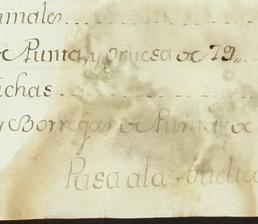 imales....
de Punta, y gruesa de 79,,
ichas....
y Borregas de Punta de
Pasa ala buelta